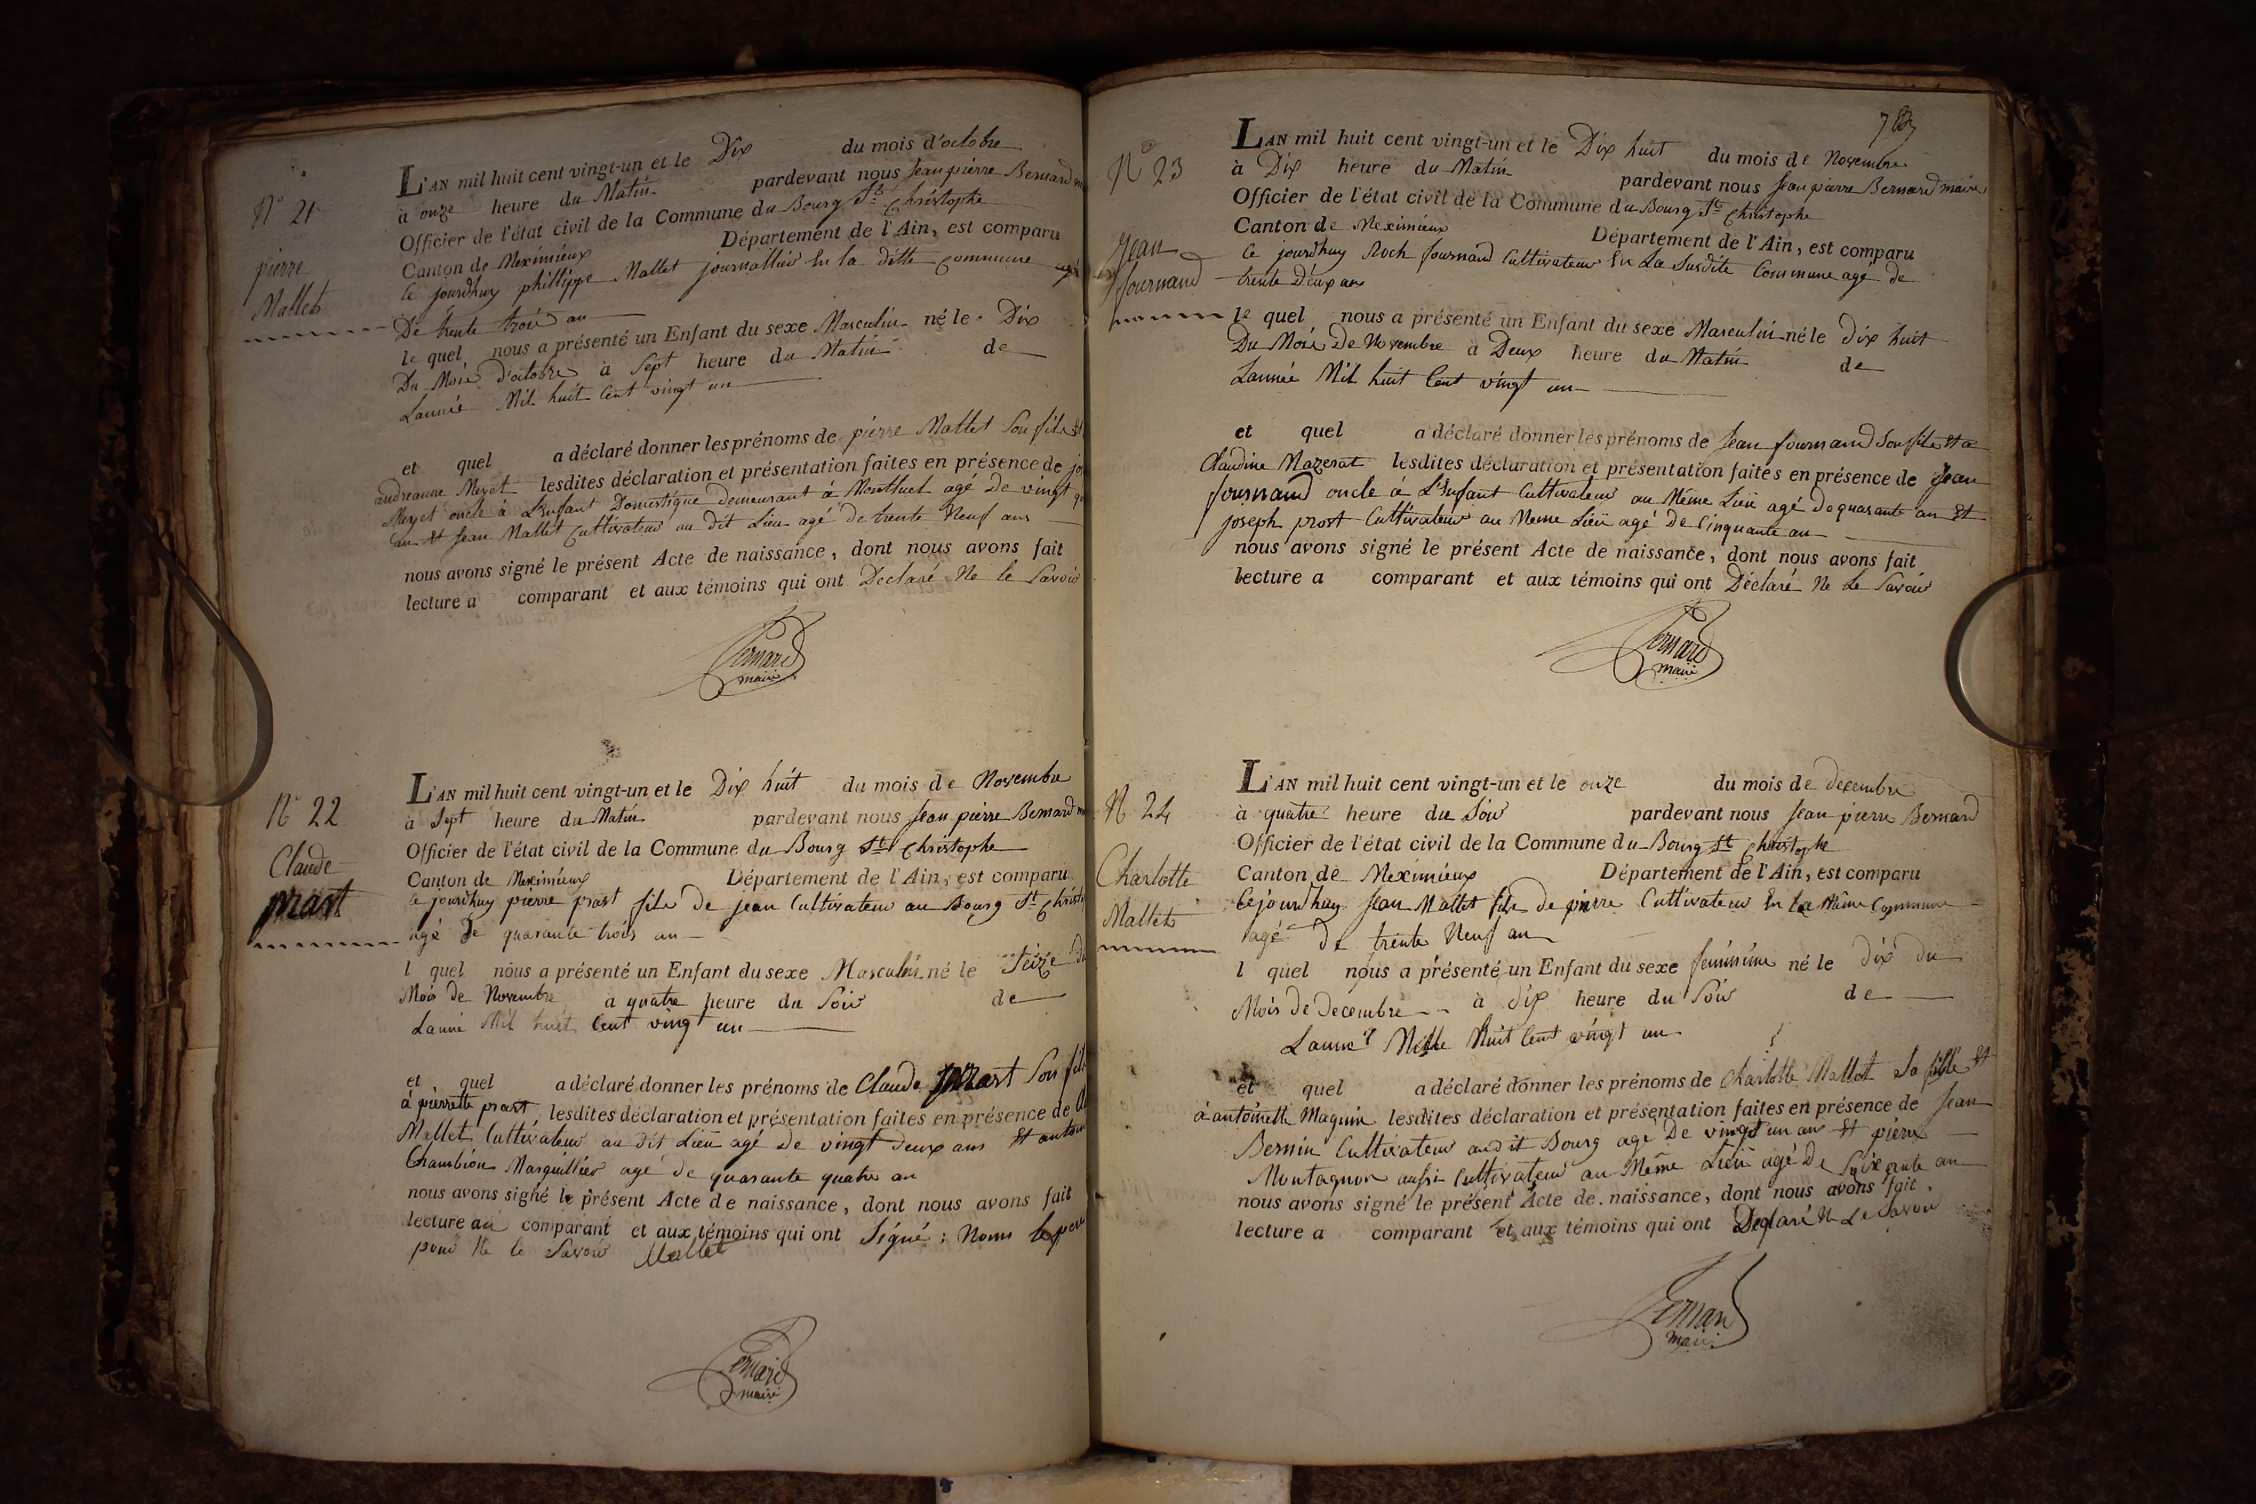 N° 21
pierre
Mallet
L'AN mil huit cent vingt-un et le Dix du mois d'octobre
à onze heure du Matin pardevant nous Jean pierre Bernard
Officier de l'état civil de la Commune du Bourg St Christophe
Canton de Meximieux Département de l'Ain, est comparu
ce jourdhuy phillippe Mallet journallier En la ditte commune agé
De trente trois an
le quel nous a présenté un Enfant du sexe Masculin né le Dix
Du Mois d'octobre à Sept heure du Matin de
Lannée Mil huit Cent vingt un
et quel a déclaré donner les prénoms de pierre Mallet Son fils Et
andreanne Meyet lesdites déclaration et présentation faites en présence de
Meyet oncle à L'Enfant Domestique demeurant à Montluel agé De vingt
an Et Jean Mallet Cultivateur au dit Lieu agé de trente Neuf ans
nous avons signé le présent Acte de naissance, dont nous avons fait
lecture a comparant et aux témoins qui ont Declaré Ne le Savoir
Bernard
maire
N° 22
Claude
prast
L'AN mil huit cent vingt-un et le Dix huit du mois de Novembre
à Sept heure du Matin pardevant nous Jean pierre Bernard
Officier de l'état civil de la Commune du Bourg St Christophe
Canton de Meximieux Département de l'Ain, est comparu
ce jourdhuy pierre prast fils De jean Cultivateur au Bourg St
agé De quarante trois an
l quel nous a présenté un Enfant du sexe Masculin né le Seize du
Mois de Novembre a quatre heure du Soir de
Lanné Mil huit Cent vingt un
et quel a déclaré donner les prénoms de Claude prast Son fils
à pierrette prast lesdites déclaration et présentation faites en présence de
Mallet Cultivateur au Dit Lieu agé De vingt Deux ans Et
Chambion Marguillier agé de quarante quatre an
nous avons signé le présent Acte de naissance, dont nous avons fait
lecture au comparant et aux témoins qui ont Signé : Nonis le pere
pour Ne le Savoir Mallet
Bernard
maire
N° 23
Jean
fournand
L'AN mil huit cent vingt-un et le Dix huit du mois de Novembre
à Dix heure du Matin pardevant nous Jean pierre Bernard maire
Officier de l'état civil de la Commune du Bourg St Christophe
Canton de Meximieux Département de l'Ain, est comparu
Ce jourdhuy Roch fournand Cultivateur En La Susdite Commune agé de
trente Deux an
le quel nous a présenté un Enfant du sexe Masculin né le Dix huit
Du Mois De Novembre à Deux heure du Matin de
Lannée Mil huit Cent vingt un
et quel a déclaré donner les prénoms de Jean fournand Son fils Et a
Claudine Mazerat lesdites déclaration et présentation faites en présence de Jean
fournand oncle à L'Enfant Cultivateur au Même Lieu agé De quarante an Et
joseph prost Cultivateur au Meme Lieu agé De Cinquante an
nous avons signé le présent Acte de naissance, dont nous avons fait
lecture a comparant et aux témoins qui ont Déclaré Ne Le Savoir
Bernard
maire
N° 24
Charlotte
Mallet
L'AN mil huit cent vingt-un et le onze du mois de decembre
à quatre heure du Soir pardevant nous Jean pierre Bernard
Officier de l'état civil de la Commune du Bourg St Christophe
Canton de Meximieux Département de l'Ain, est comparu
Ce jourdhuy Jean Mallet fils de pierre Cultivateur En La Même Commune
agé de trente Neuf an
l quel nous a présenté un Enfant du sexe feminine né le dix du
Mois de Decembre à dix heure du Soir de
Lanneé Mille Huit Cent vingt un
et quel a déclaré donner les prénoms de Charlotte Mallet Sa fille Et
à antoinette Maguin lesdites déclaration et présentation faites en présence de Jean
Bernin Cultivateur audit Bourg agé De vingt un an Et pierre
Montagnon aussi Cultivateur au Même Lieu agé De Soixante an
nous avons signé le présent Acte de naissance, dont nous avons fait
lecture a comparant et aux témoins qui ont Declaré Ne Le Savoir
Bernard
maire